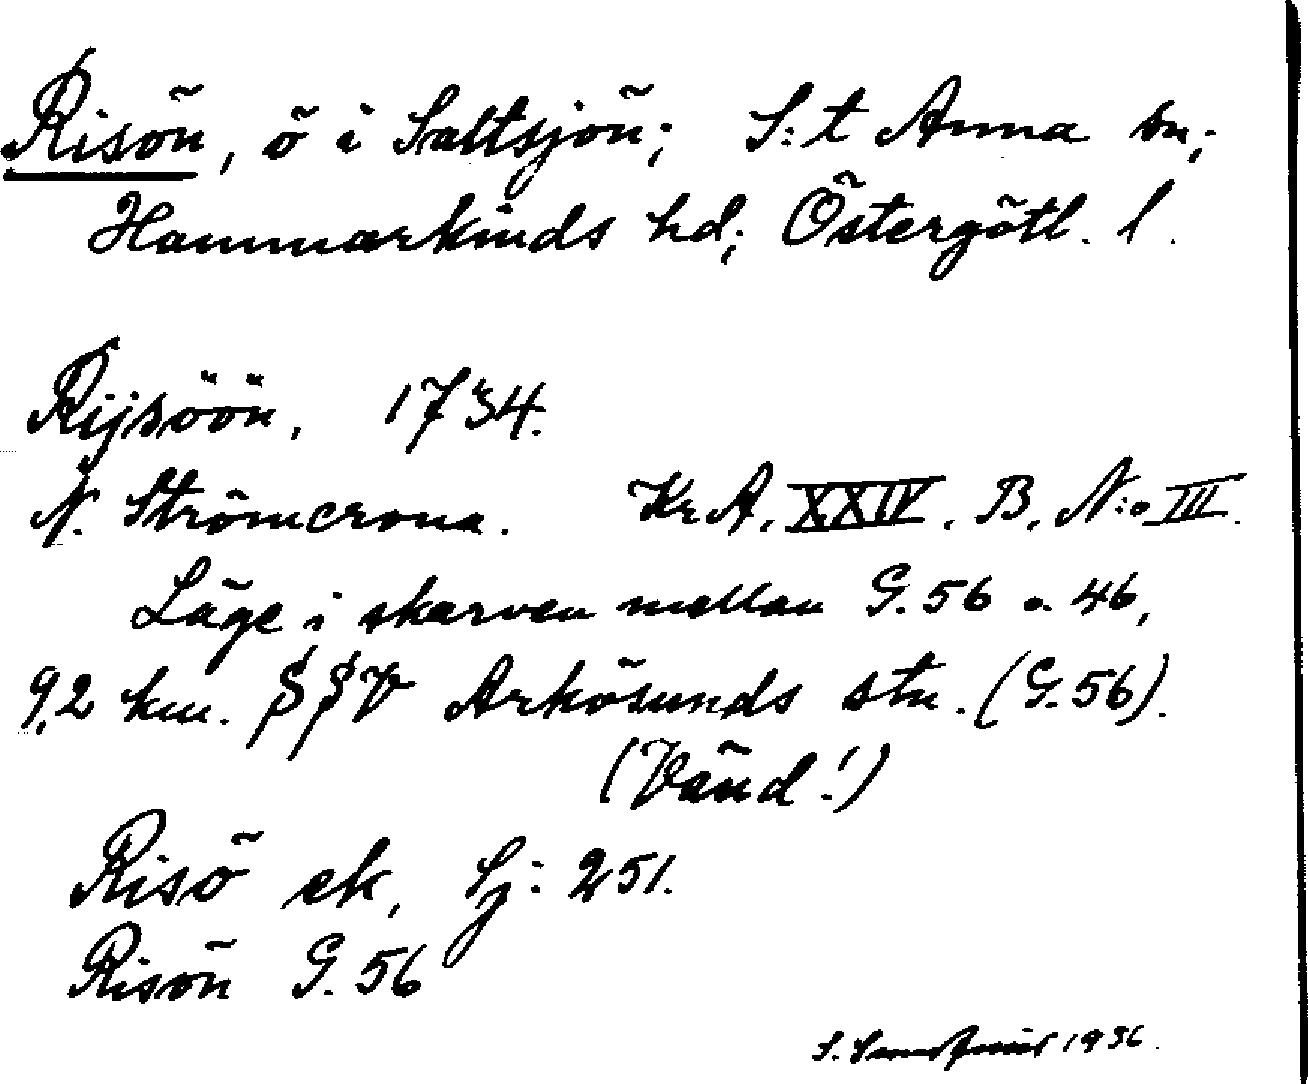 Risön, ö i Saltsjön; S:t Anna sn;
Hammarkinds hd; Östergötl. l.
Rijsöön, 1734.
N. Strömcrona. Kr A, XXIV. B, N:o III.
Läge i skarven mellan G. 56 o. 46,
9,2 km. SSV Arkösunds stn. (G. 56).
(Vänd!)
Risö ek, Sj: 251.
Risön G. 56
S. 1936.